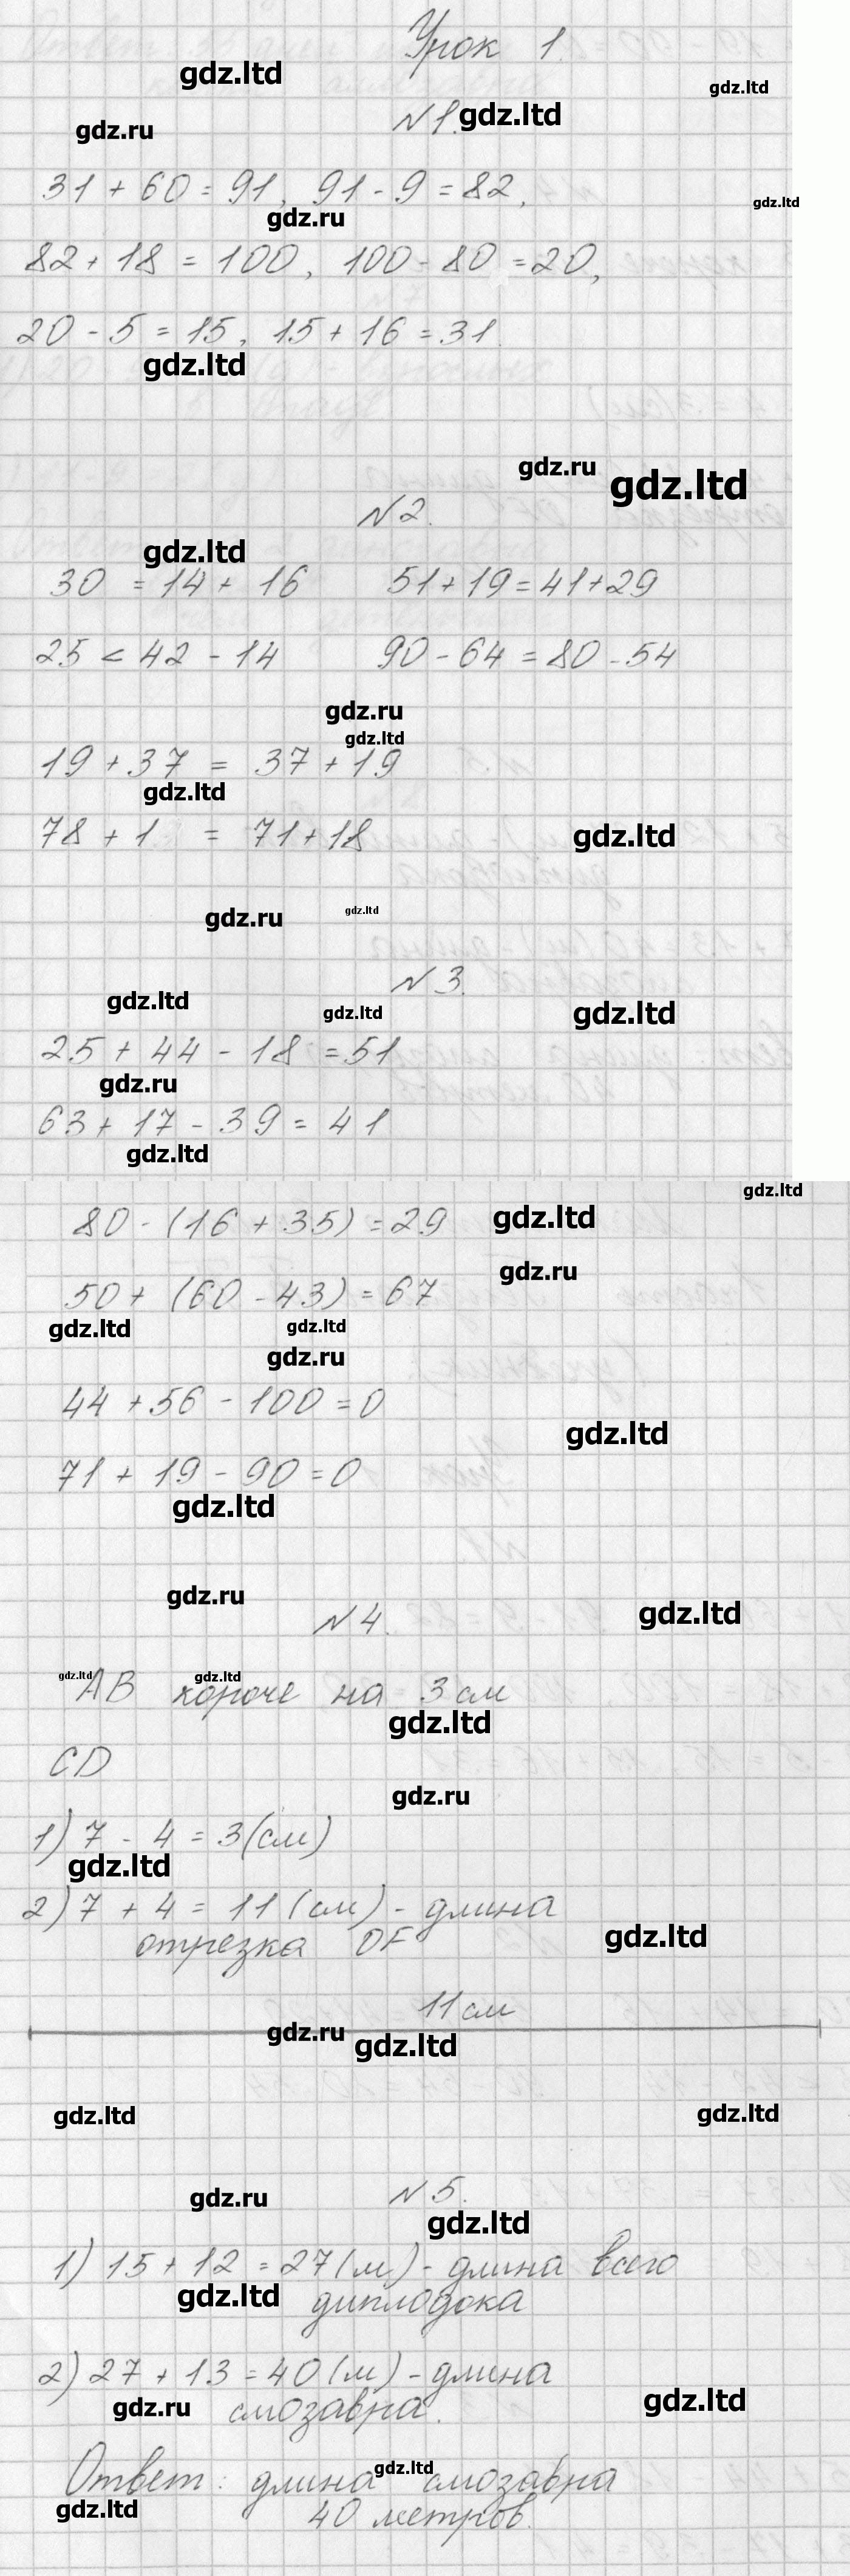 Урок 1.
gdz.ltd
gdz.ltd
N1.
gdz.ltd
gdz.ru
31 + 60 = 91, 91 - 9 = 82,
gdz.ltd
gdz.ru
82 + 18 = 100, 100 - 80 = 20,
20 - 5 = 15, 15 + 16 = 31.
gdz.ltd
gdz.ru
gdz.ltd
N2.
gdz.ltd
30 = 14 + 16 51 + 19 = 41 + 29
25 < 42 - 14 90 - 64 = 80 - 54
gdz.ru
gdz.ltd
19 + 37 = 37 + 19
gdz.ltd
78 + 1 = 71 + 18
gdz.ltd
gdz.ru
gdz.ltd
N3.
gdz.ltd
gdz.ltd
gdz.ltd
25 + 44 - 18 = 51
gdz.ru
63 + 17 - 39 = 41
gdz.ltd
gdz.ltd
80 - (16 + 35) = 29
gdz.ltd
gdz.ru
50 + (60 - 43) = 67
gdz.ltd
gdz.ltd
gdz.ru
44 + 56 - 100 = 0
gdz.ltd
71 + 19 - 90 = 0
gdz.ltd
gdz.ru
N4.
gdz.ltd
gdz.ltd
gdz.ltd
AB короче на 3 см
gdz.ltd
CD
gdz.ru
1) 7 - 4 = 3 (см)
gdz.ltd
2) 7 + 4 = 11 (см) - длина
отрезка OF
gdz.ltd
11 см
gdz.ru
gdz.ltd
gdz.ltd
gdz.ltd
gdz.ru
N5.
gdz.ltd
1) 15 + 12 = 27 (м) - длина всего
gdz.ltd
диплодока
2) 27 + 13 = 40 (м) - длина
gdz.ltd
gdz.ru
смозавра.
gdz.ltd
Ответ: длина смозавра
gdz.ltd
40 метров.